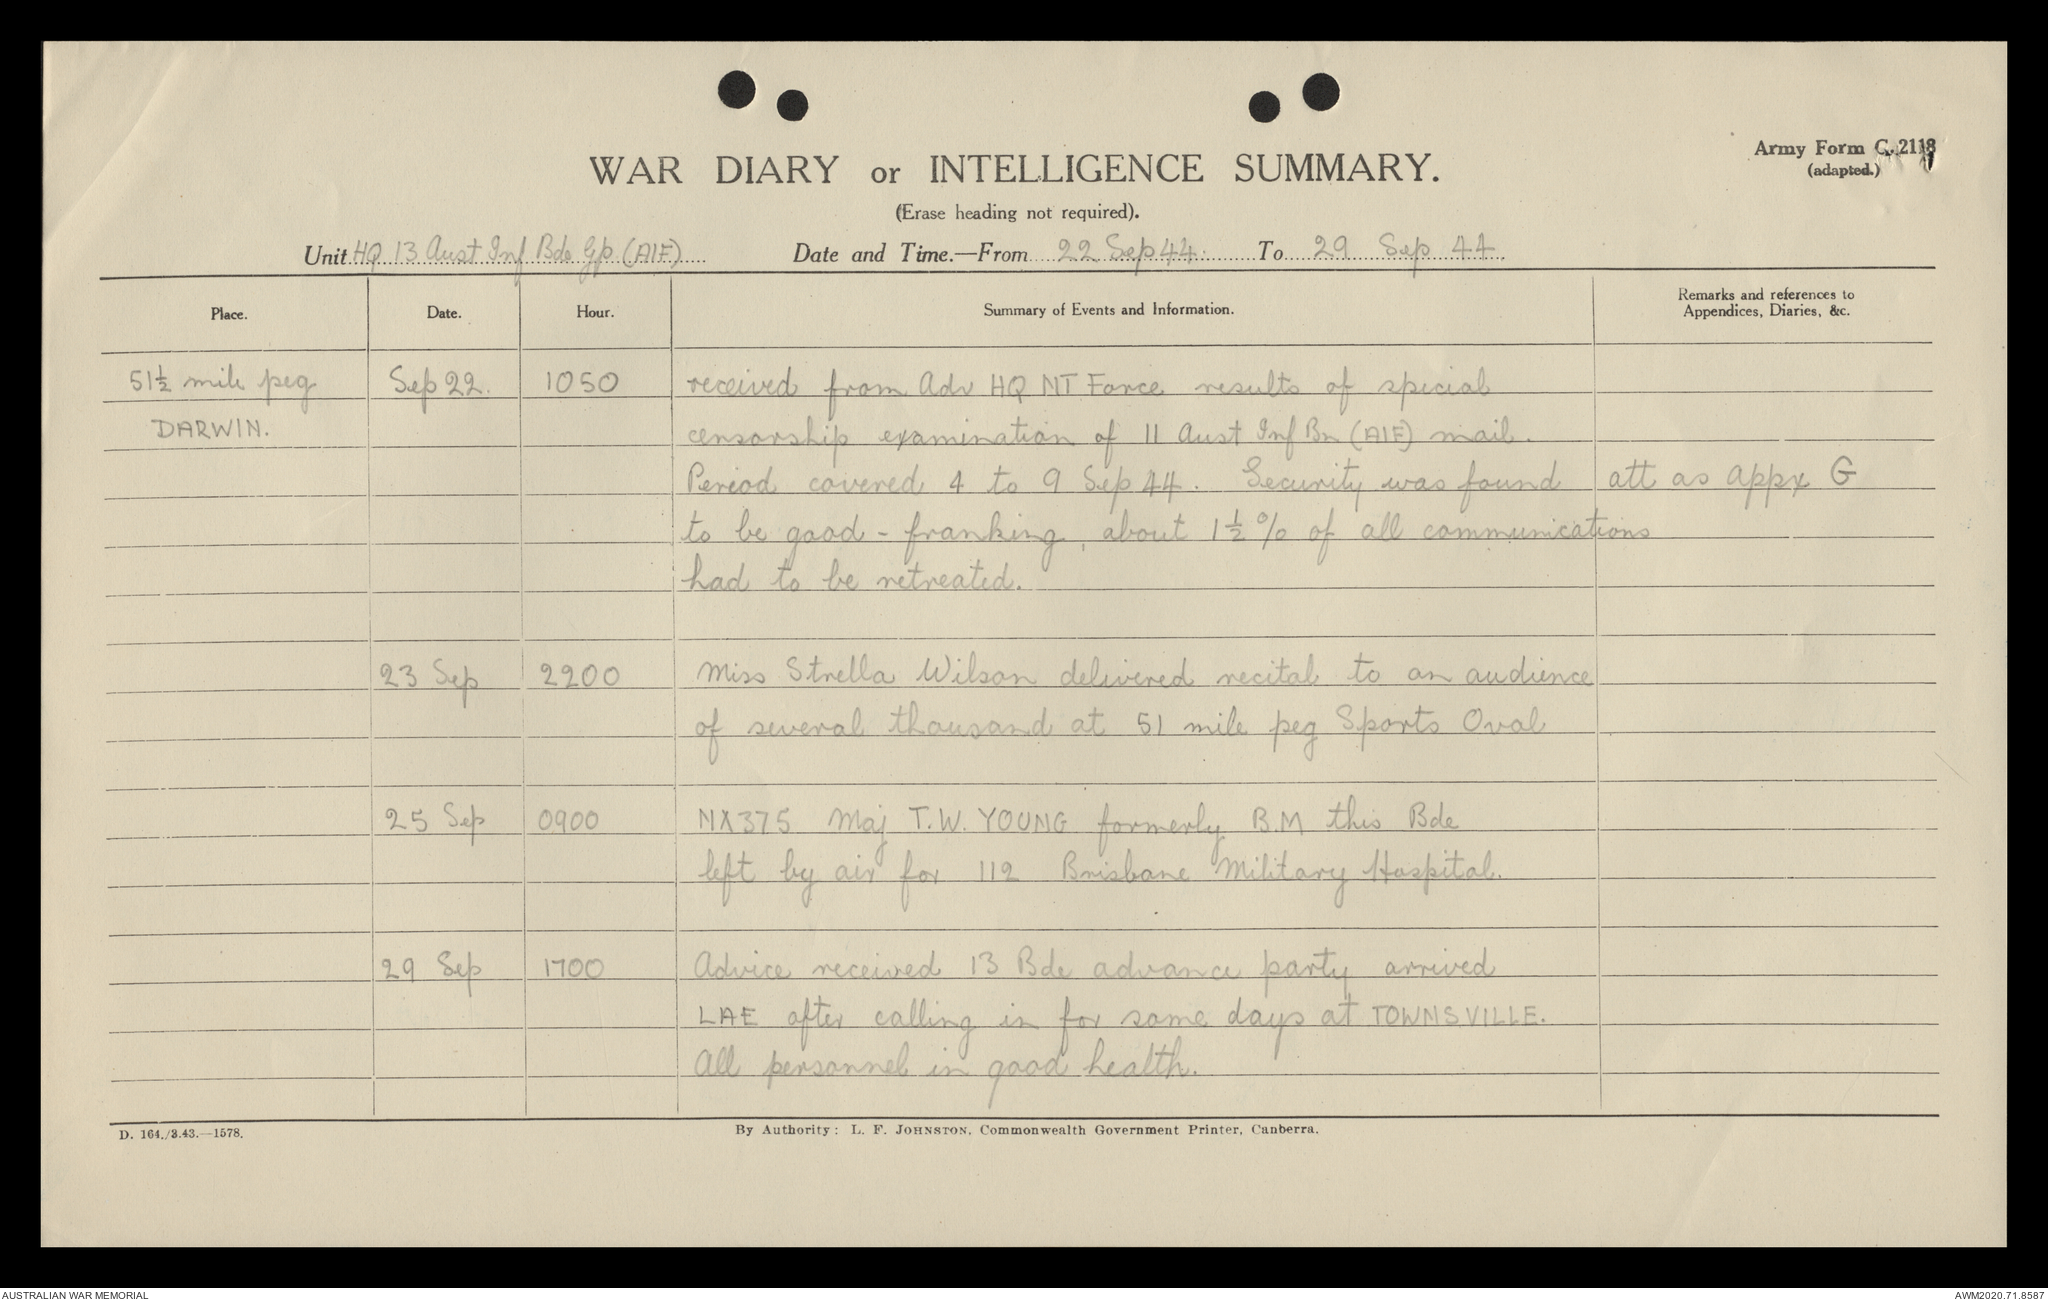 Army Form C. 2118
(adapted.)
WAR DIARY or INTELLIGENCE SUMMARY.
(Erase heading not required).
Unit HQ 13 Aust Inf Bde Gp (AIF) Date and Time.—From 22 Sep 44. To 29 Sep 44.
Place. Date. Hour. Summary of Events and Information. Remarks and references to
Appendices, Diaries, &c.
51½ mile peg Sep 22. 1050 received from Adv HQ NT Force results of special
DARWIN. censorship examination of 11 Aust Inf Bn (AIF) mail.
Period covered 4 to 9 Sep 44. Security was found att as Appx G
to be good - franking, about 1½% of all communications
had to be retreated.
23 Sep 2200 Miss Strella Wilson delivered recital to an audience
of several thousand at 51 mile peg Sports Oval
25 Sep 0900 NX375 Maj T.W. YOUNG formerly B.M this Bde
left by air for 112 Brisbane Military Hospital.
29 Sep 1700 Advice received 13 Bde advance party arrived
LAE after calling in for some days at TOWNSVILLE.
All personnel in good health.
D. 164./3.43.—1578. By Authority: L. F. JOHNSTON, Commonwealth Government Printer, Canberra.
AUSTRALIAN WAR MEMORIAL AWM2020.71.8587